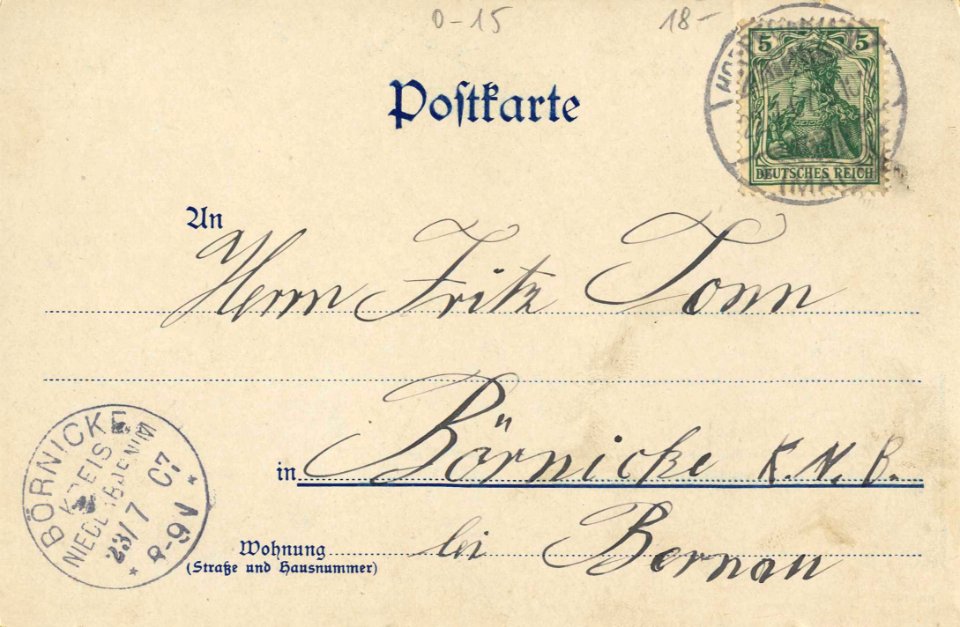 0-15 18-
5 5
DEUTSCHES REICH
(MARK
Postkarte
An
Herrn Fritz Tonn
in Börnicke K. N. B.
bei Bernau
Wohnung
(Straße und Hausnummer)
BÖRNICKE
KREIS
NIEDERBARNIM
23/7 07
8-9 V